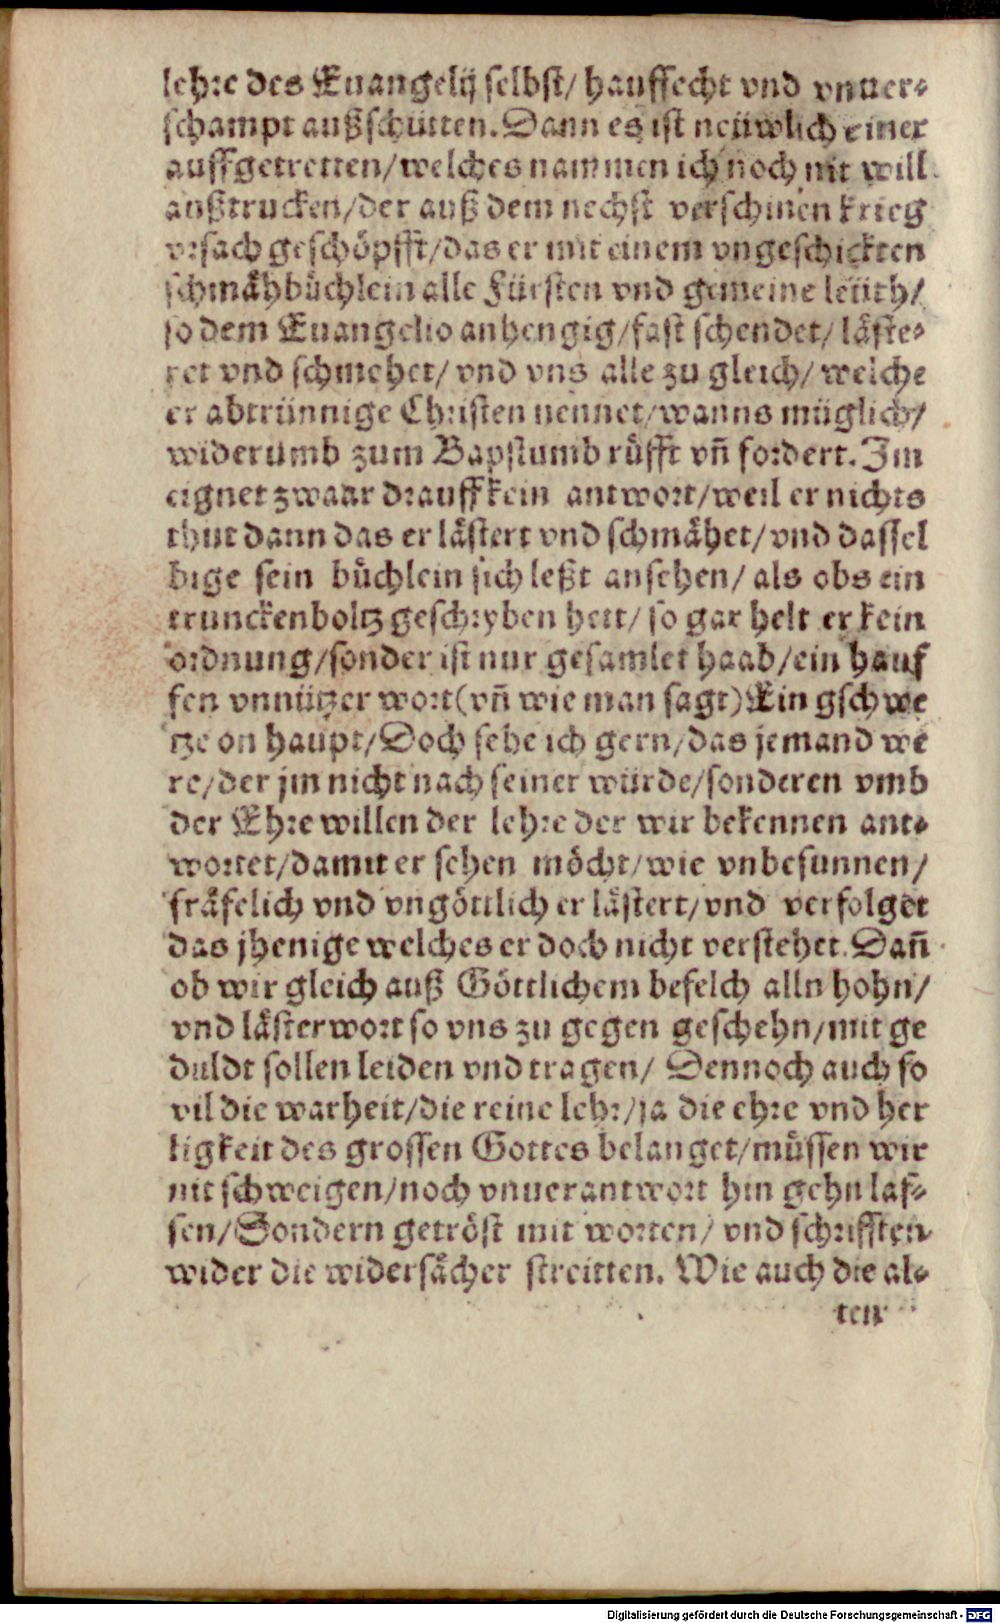 lehre des Euangelij selbst/ hauffecht vnd vnuer-
schampt außschütten. Dann es ist neüwlich einer
auffgetretten/welches nammen ich noch nit will
außtrucken/der auß dem nechst verschinen krieg
vrsach geschöpfft/das er mit einem vngeschickten
schmåhbůchlein alle Fürsten vnd gemeine leüth/
so dem Euangelio anhengig/fast schendet/ låste-
ret vnd schmehet/ vnd vns alle zu gleich/ welche
er abtrünnige Christen nennet/wanns müglich/
widerumb zum Bapstumb růfft vñ fordert. Im
eignet zwaar drauff kein antwort/weil er nichts
thut dann das er låstert vnd schmåhet/ vnd dassel
bige sein bůchlein sich leßt ansehen/ als obs ein
trunckenboltz geschryben hett/ so gar helt er kein
ordnung/sonder ist nur gesamlet haab/ein hauf
fen vnnützer wort(vñ wie man sagt)Ein gschwe
tze on haupt/Doch sehe ich gern/das jemand we
re/der jm nicht nach seiner würde/sonderen vmb
der Ehre willen der lehre der wir bekennen ant-
wortet/damit er sehen möcht/wie vnbesunnen/
fråfelich vnd vngöttlich er låstert/vnd verfolget
das jhenige welches er doch nicht verstehet. Dañ
ob wir gleich auß Göttlichem befelch alln hohn/
vnd låsterwort so vns zu gegen geschehn/mit ge
duldt sollen leiden vnd tragen/ Dennoch auch so
vil die warheit/die reine lehr/ja die ehre vnd her
ligkeit des grossen Gottes belanget/müssen wir
nit schweigen/noch vnuerantwort hin gehn las-
sen/Sondern getröst mit worten/ vnd schrifften
wider die widersåcher streitten. Wie auch die al-
ten
Digitalisierung gefördert durch die Deutsche Forschungsgemeinschaft - DFG